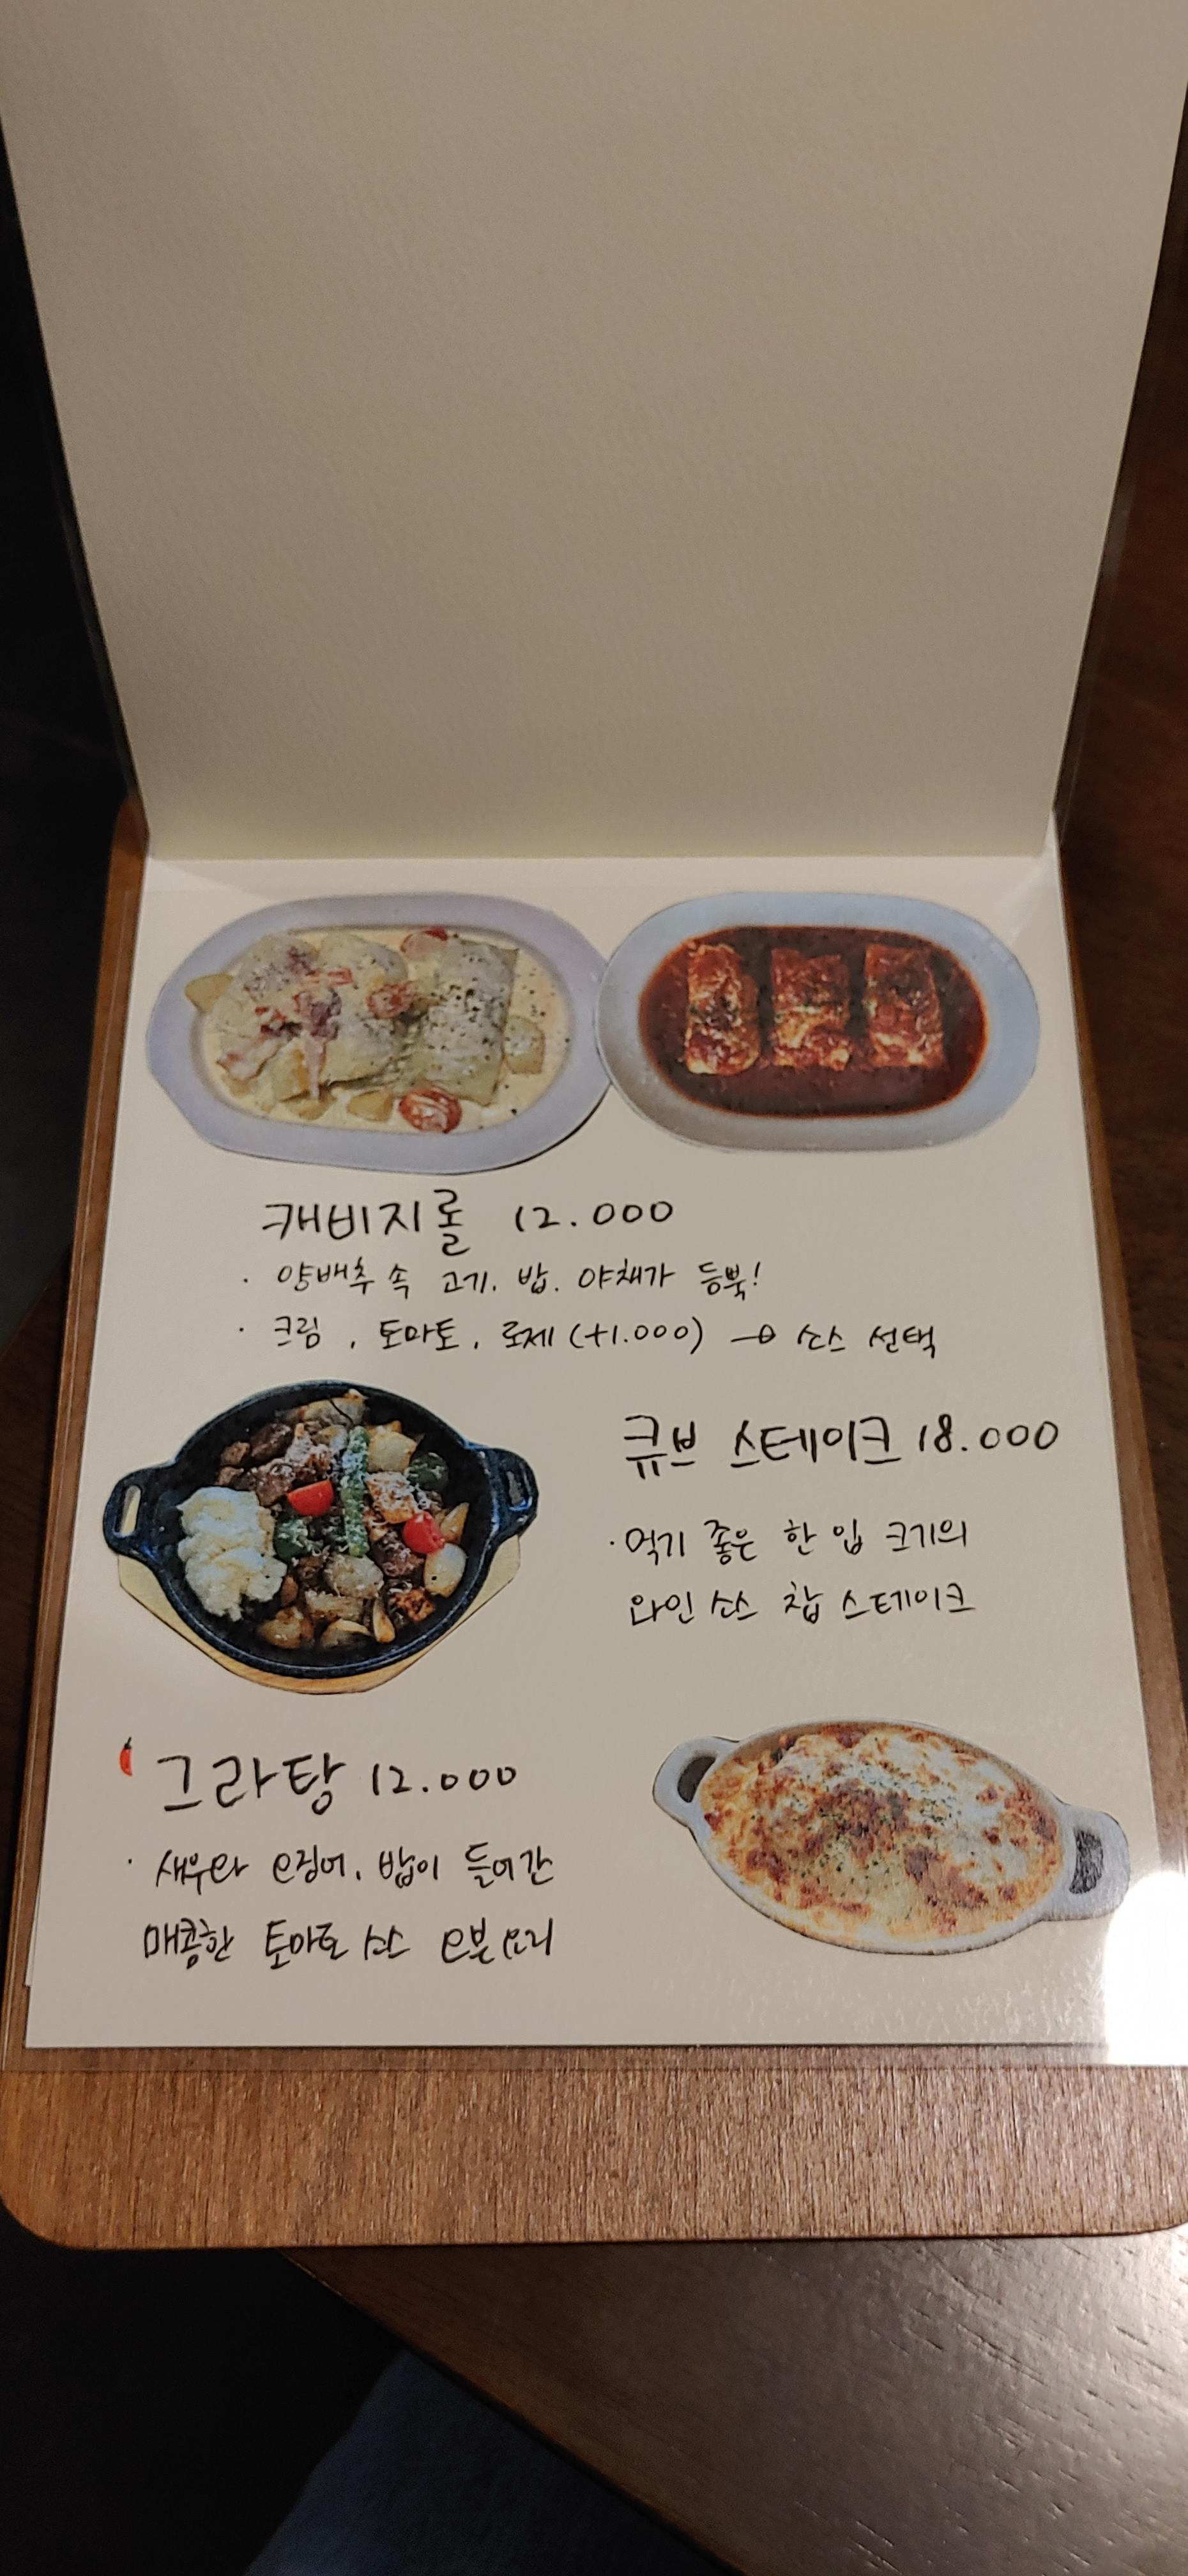 캐비지롤 12.000
· 양배추 속 고기. 밥. 야채가 듬뿍!
· 크림, 토마토, 로제(+1.000) → 소스 선택
큐브 스테이크 18.000
· 먹기 좋은 한 입 크기의
와인 소스 찹 스테이크
그라탕 12.000
· 새우와 오징어. 밥이 들어간
매콤한 토마토 소스 오븐 요리